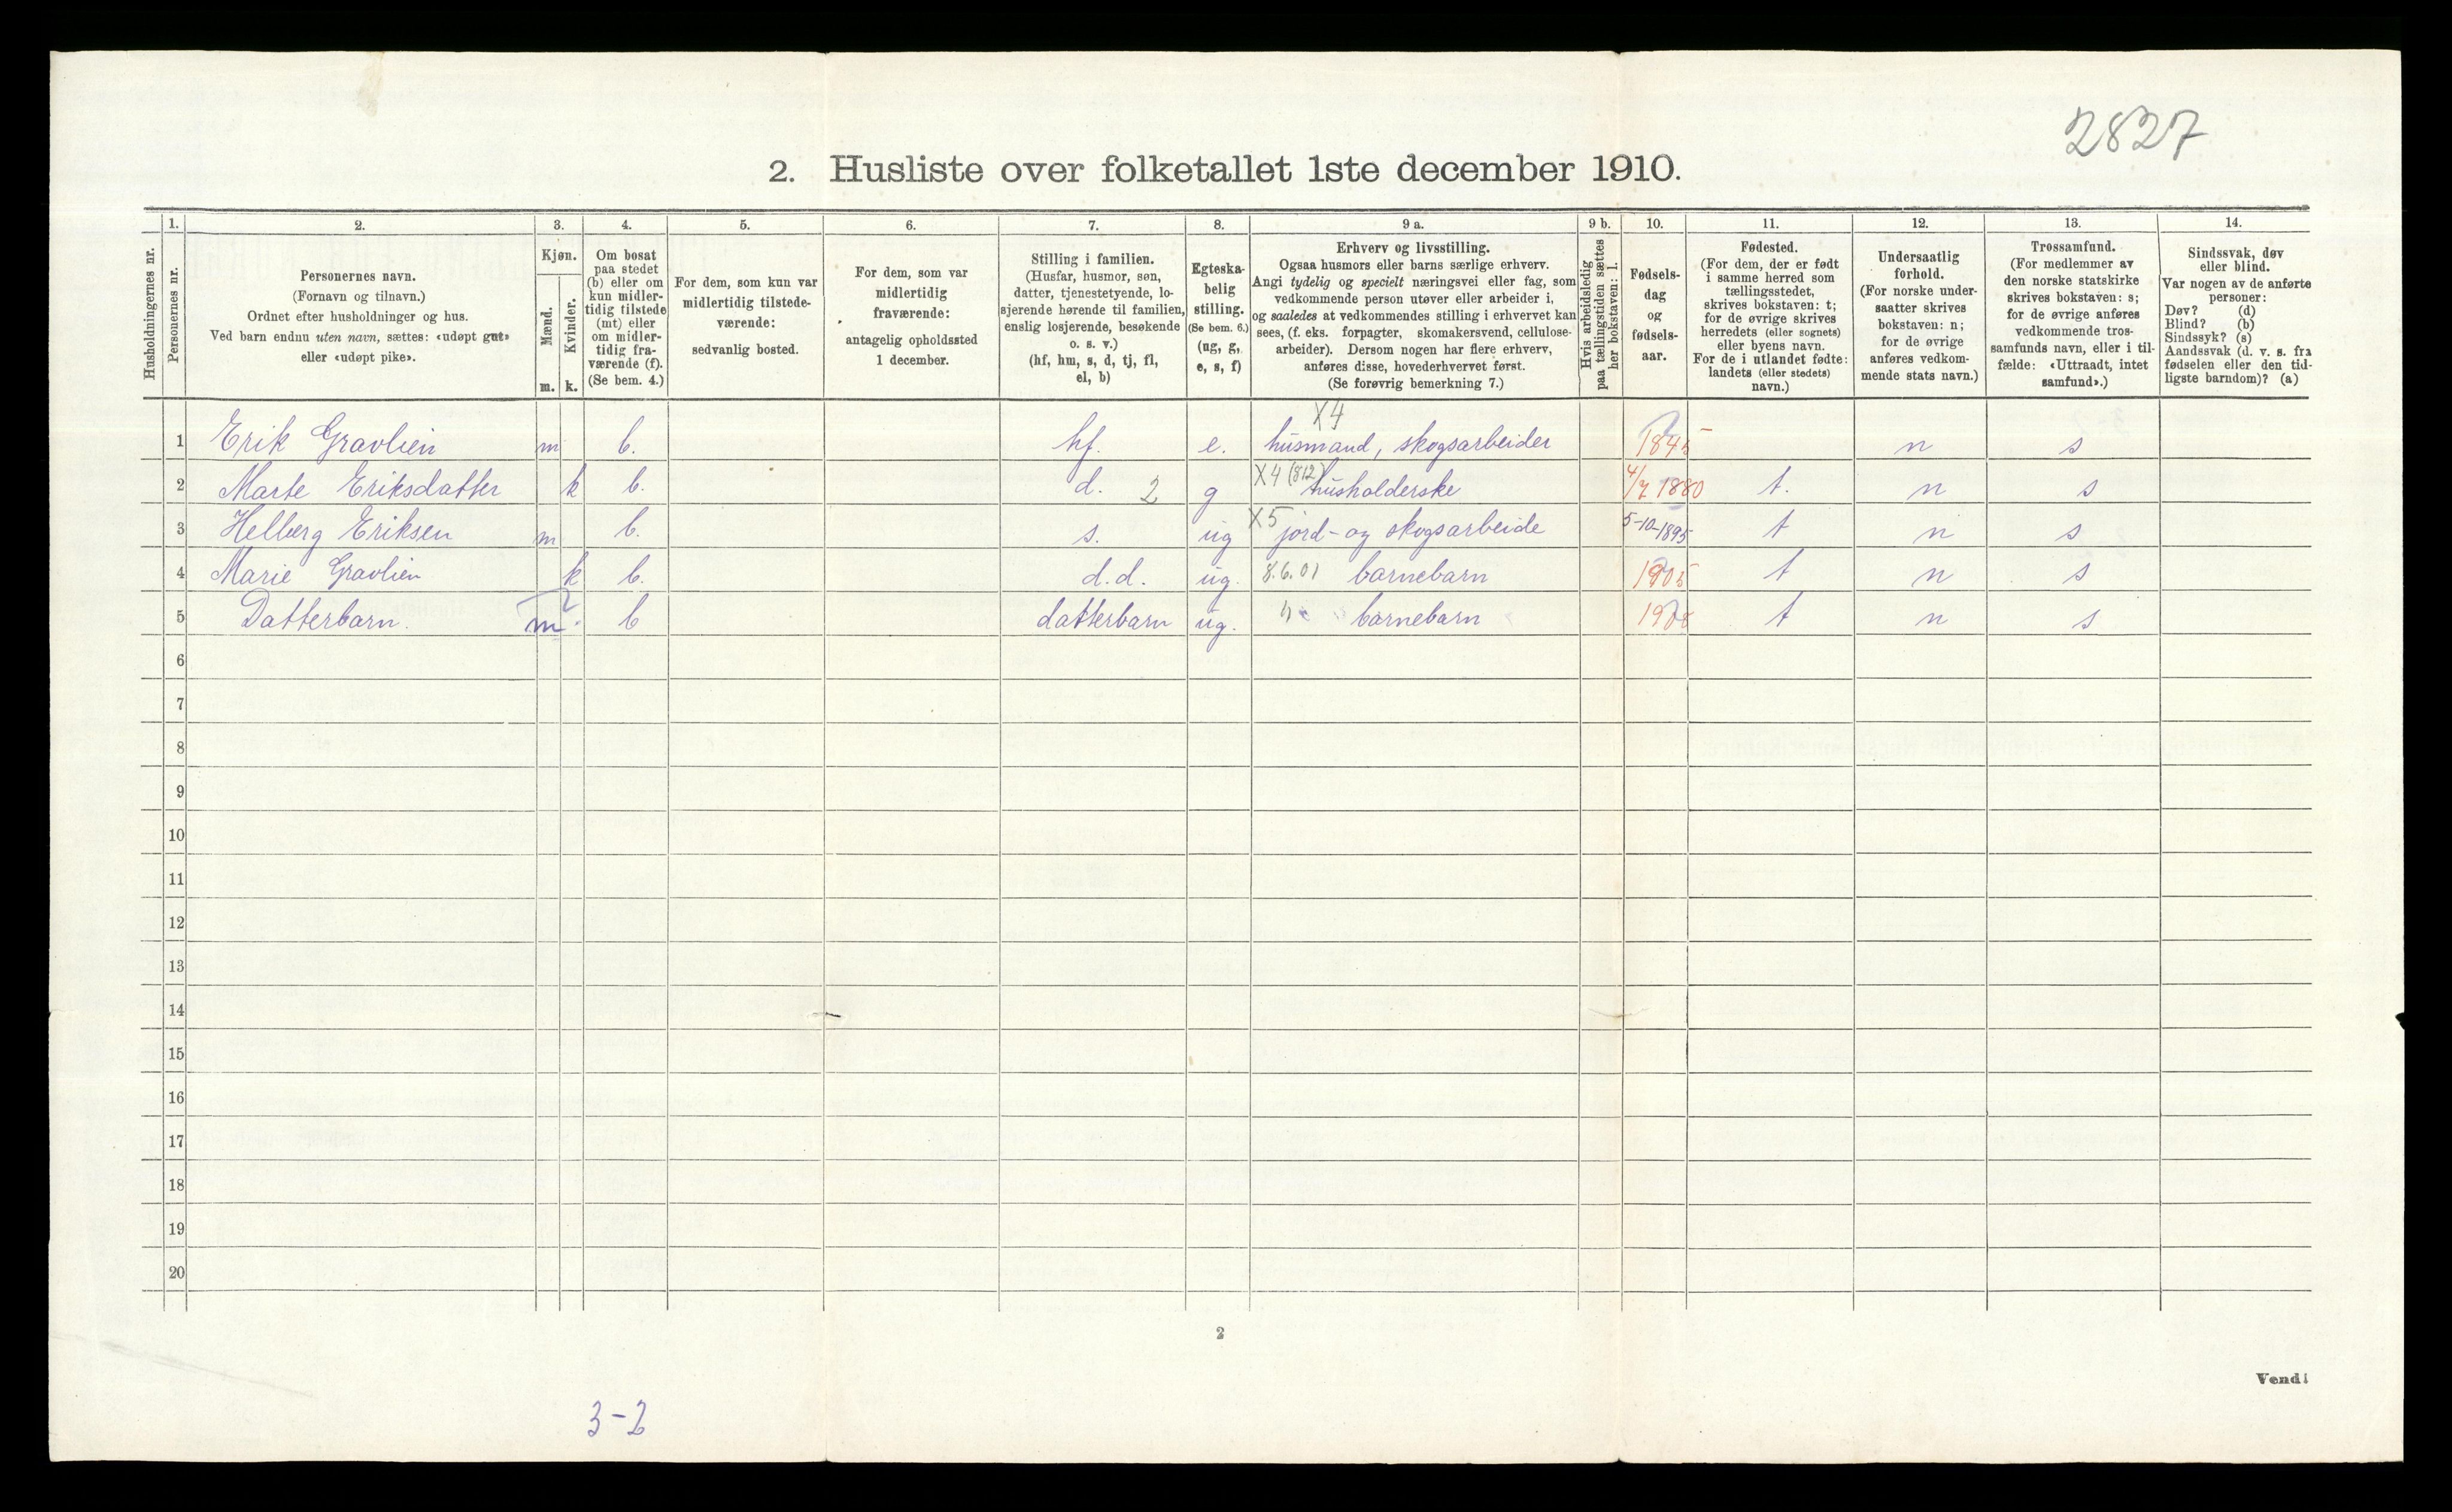 2827
2. Husliste over folketallet 1ste december 1910.
Husholdningernes nr.
1.
Personernes nr.
2.
Personernes navn.
(Fornavn og tilnavn.)
Ordnet efter husholdninger og hus.
Ved barn endnu uten navn, sættes: «udøpt gut»
eller «udøpt pike».
3.
Kjøn.
Mænd.
m.
Kvinder.
k.
4.
Om bosat
paa stedet
(b) eller om
kun midler-
tidig tilstede
(mt) eller
om midler-
tidig fra-
værende (f).
(Se bem. 4.)
5.
For dem, som kun var
midlertidig tilstede-
værende:
sedvanlig bosted.
6.
For dem, som var
midlertidig
fraværende:
antagelig opholdssted
1 december.
7.
Stilling i familien.
(Husfar, husmor, søn,
datter, tjenestetyende, lo-
sjerende hørende til familien,
enslig losjerende, besøkende
o. s. v.)
(hf, hm, s, d, tj, fl,
el, b)
8.
Egteska-
belig
stilling.
(Se bem. 6.)
(ug, g,
e, s, f)
9 a.
Erhverv og livsstilling.
Ogsaa husmors eller barns særlige erhverv.
Angi tydelig og specielt næringsvei eller fag, som
vedkommende person utøver eller arbeider i,
og saaledes at vedkommendes stilling i erhvervet kan
sees, (f. eks. forpagter, skomakersvend, cellulose-
arbeider). Dersom nogen har flere erhverv,
anføres disse, hovederhvervet først.
(Se forøvrig bemerkning 7.)
9 b.
Hvis arbeidsledig
paa tællingstiden sættes
her bokstaven: l.
10.
Fødsels-
dag
og
fødsels-
aar.
11.
Fødested.
(For dem, der er født
i samme herred som
tællingsstedet,
skrives bokstaven: t;
for de øvrige skrives
herredets (eller sognets)
eller byens navn.
For de i utlandet fødte:
landets (eller stedets)
navn.)
12.
Undersaatlig
forhold.
(For norske under-
saatter skrives
bokstaven: n;
for de øvrige
anføres vedkom-
mende stats navn.)
13.
Trossamfund.
(For medlemmer av
den norske statskirke
skrives bokstaven: s;
for de øvrige anføres
vedkommende tros-
samfunds navn, eller i til-
fælde: «Uttraadt, intet
samfund».)
14.
Sindssvak, døv
eller blind.
Var nogen av de anførte
personer:
Døv? (d)
Blind? (b)
Sindssyk? (s)
Aandssvak (d. v. s. fra
fødselen eller den tid-
ligste barndom)? (a)
X4
1 Erik Gravlien m b. hf. e. husmand, skogsarbeider 1845 n s
2 Marte Eriksdatter k b. d. 2 g X4 (812) husholderske 4/7 1880 t. n s
3 Helberg Eriksen m b. s. ug X5 jord- og skogsarbeide 5-10-1895 t n s
4 Marie Gravlien k b. d.d. ug. 8.6.01 barnebarn 1905 t n s
5 Datterbarn. m b datterbarn ug. barnebarn t n s
6
7
8
9
10
11
12
13
14
15
16
17
18
19
20
2
Vend!
3-2